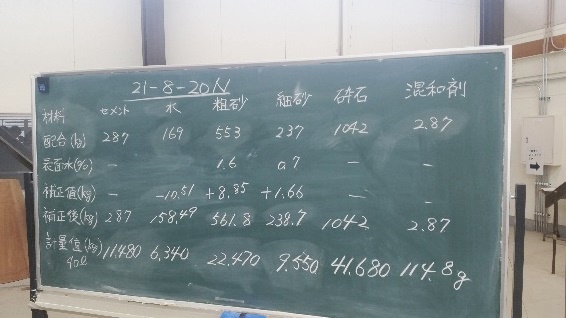 21-8-20N
材料 セメント 水 粗砂 細砂 砕石 混和剤
配合(kg) 287 169 553 237 1042 2.87
表面水(%) - 1.6 0.7 - -
補正値(kg) - -10.51 +8.85 +1.66 - -
補正後(kg) 287 158.49 561.8 238.7 1042 2.87
計量値(kg) 11.480 6.340 22.470 9.550 41.680 114.8g
40ℓ